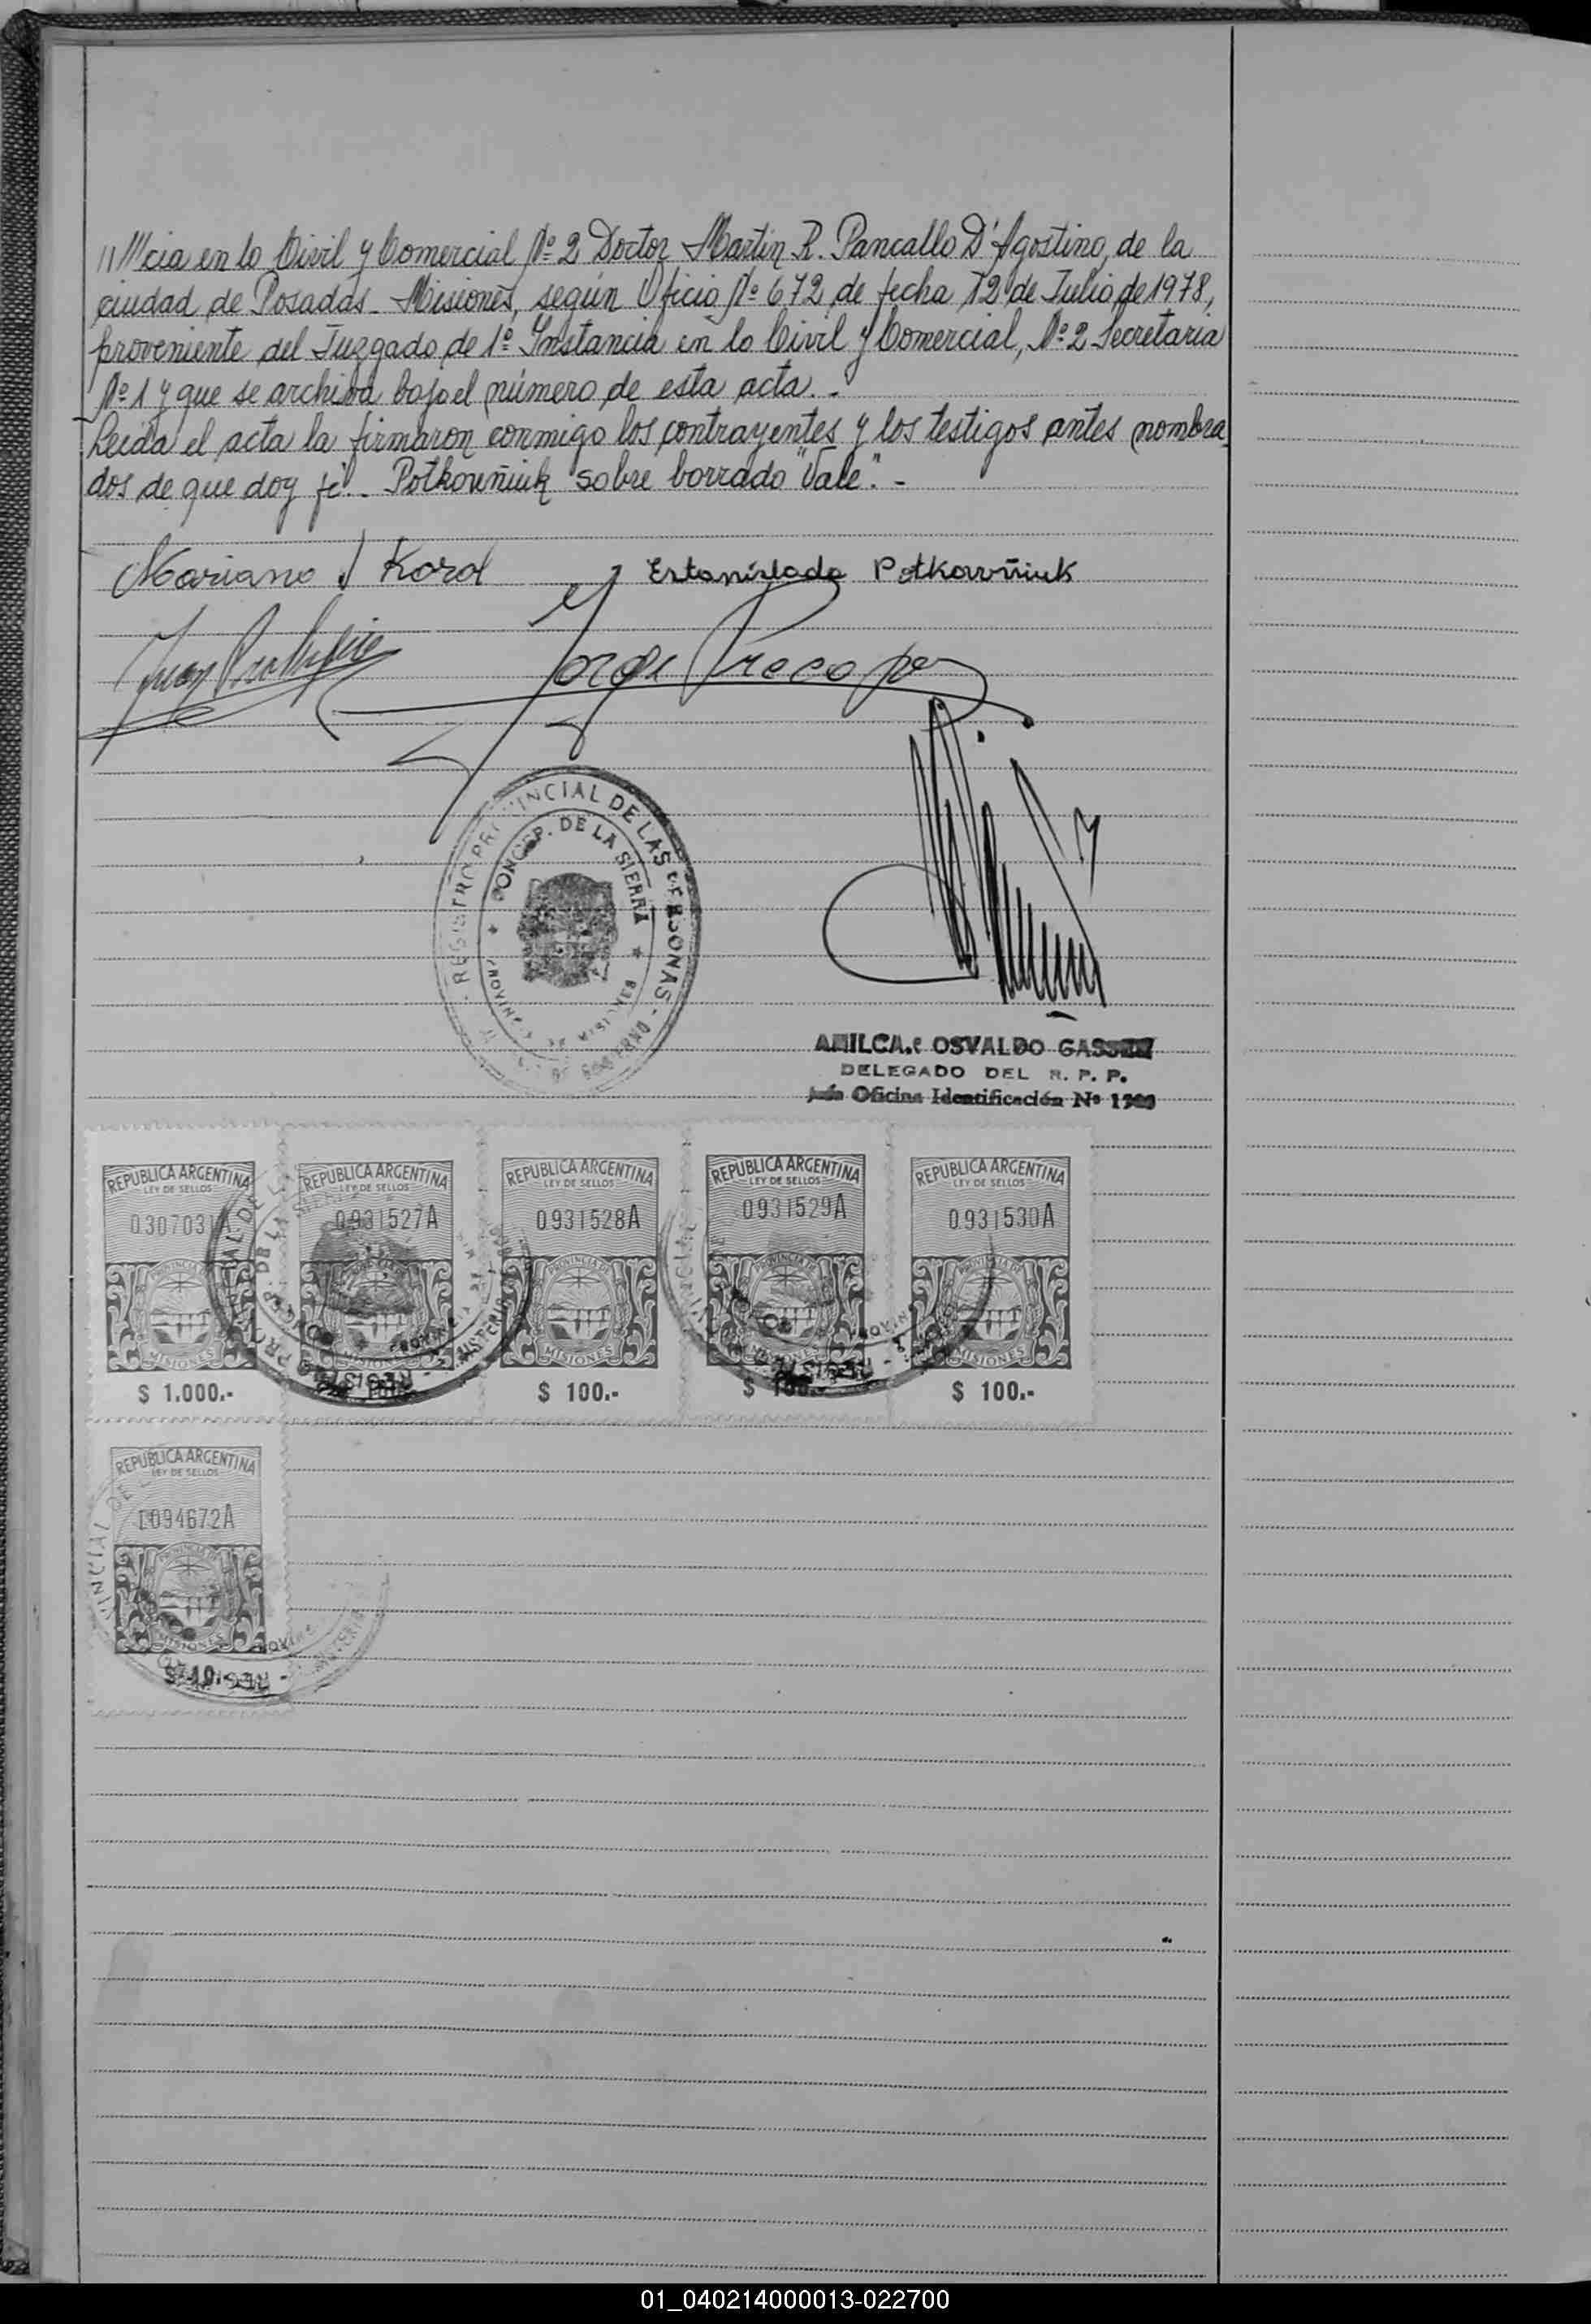 cia en lo Civil y Comercial Nº 2 Doctor Martin R. Pancallo D'Agostino, de la
ciudad de Posadas - Misiones, según Oficio Nº 672 de fecha 12 de Julio de 1978,
proveniente del Juzgado de 1º Instancia en lo Civil y Comercial, Nº 2 Secretaria
Nº 1 y que se archiva bajo el número de esta acta. -
Leida el acta la firmaron conmigo los contrayentes y los testigos antes nombra-
dos de que doy fé. - Potkowñiuk sobre borrado "Vale". -
Mariano J Korol Estanislada Potkowñiuk
Juan Jorge
REGISTRO PROVINCIAL DE LAS PERSONAS -
CONCEP. DE LA SIERRA
PROVINCIA DE MISIONES
AMILCAR OSVALDO
DELEGADO DEL R. P. P.
Jefe Oficina Identificación Nº
REPUBLICA ARGENTINA REPUBLICA ARGENTINA REPUBLICA ARGENTINA REPUBLICA ARGENTINA REPUBLICA ARGENTINA
LEY DE SELLOS LEY DE SELLOS LEY DE SELLOS LEY DE SELLOS LEY DE SELLOS
0931527A 0931528A 0931529A 0931530A
MISIONES MISIONES MISIONES MISIONES MISIONES
$ 1.000.- $ 100.- $ 100.- $ 100.-
REPUBLICA ARGENTINA
LEY DE SELLOS
1094672A
MISIONES
01_040214000013-022700